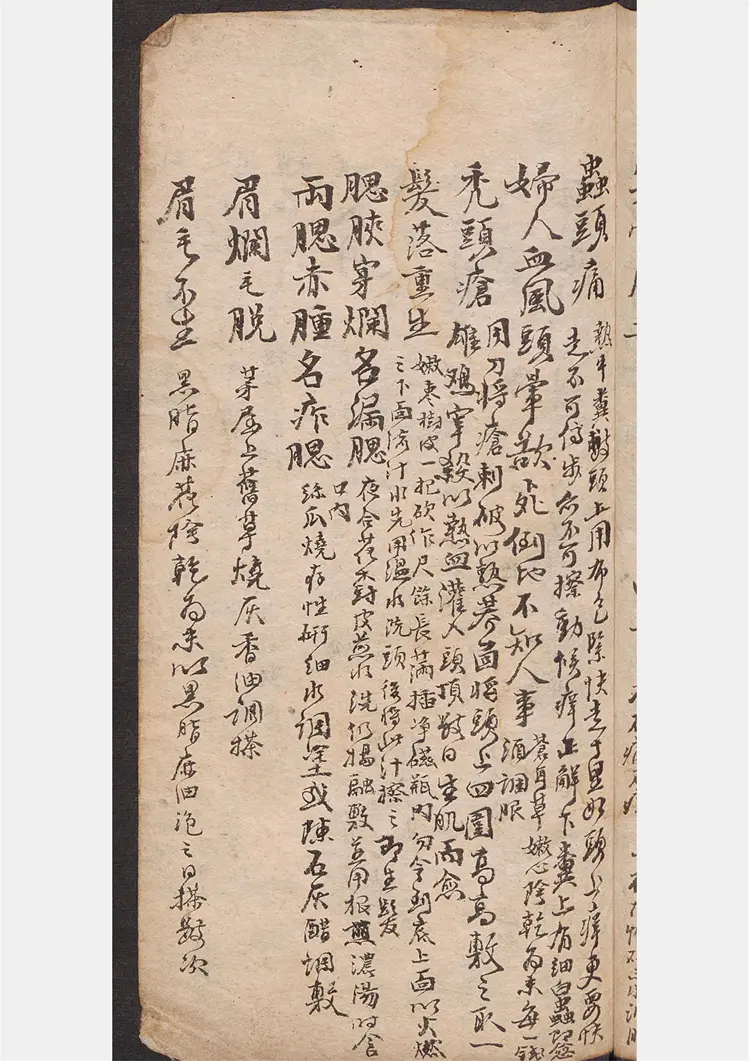 蟲頭痛 熱牛糞敷頭上用布包緊快走十里如頭上癢更要快
走不可停步亦不可擦動候癢止解下糞上有細白蟲即愈
婦人血風頭暈欲死倒地不知人事 蒼耳草嫩心陰乾為末每一錢
酒調服
禿頭瘡 用刀將瘡刺破以熬麥面將頭上四圍高高敷之取一
雄鷄宰殺以熱血灌入頭頂數日生肌而愈
髮落重生 嫩棗樹皮一把砍作尺餘長滿插淨磁瓶內勿令到底上面以火燃
之下面流汁水先用溫水洗頭後將此汁擦之即生髮
腮脥穿爛名漏腮 夜合花樹皮煎水洗仍搗融敷並用根煎濃湯時含
口內
兩腮赤腫名痄腮 絲瓜燒存性研細水調塗或陳石灰醋調敷
眉爛毛脫 茅屋上舊草燒灰香油調搽
眉毛不生 黑脂麻花陰乾為末以黑脂麻油泡之日搽數次